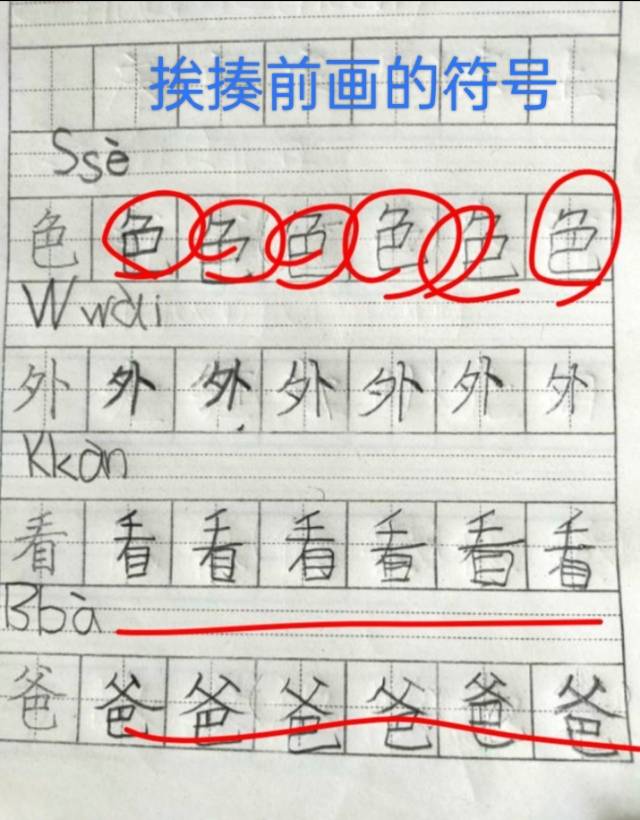 挨揍前画的符号
Ssè
色 色 色 色 色 色 色
Wwài
外 外 外 外 外 外 外
Kkàn
看 看 看 看 看 看 看
Bbà
爸 爸 爸 爸 爸 爸 爸